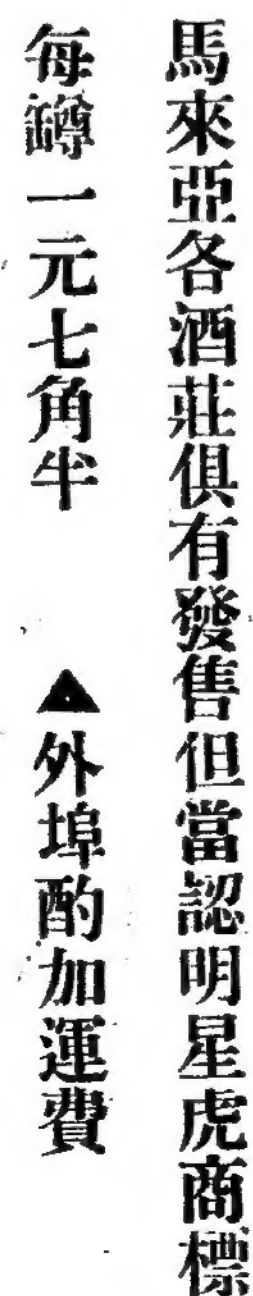 馬來亞各酒莊俱有發售但當認明星虎商標
每罇一元七角半 ▲外埠酌加運費